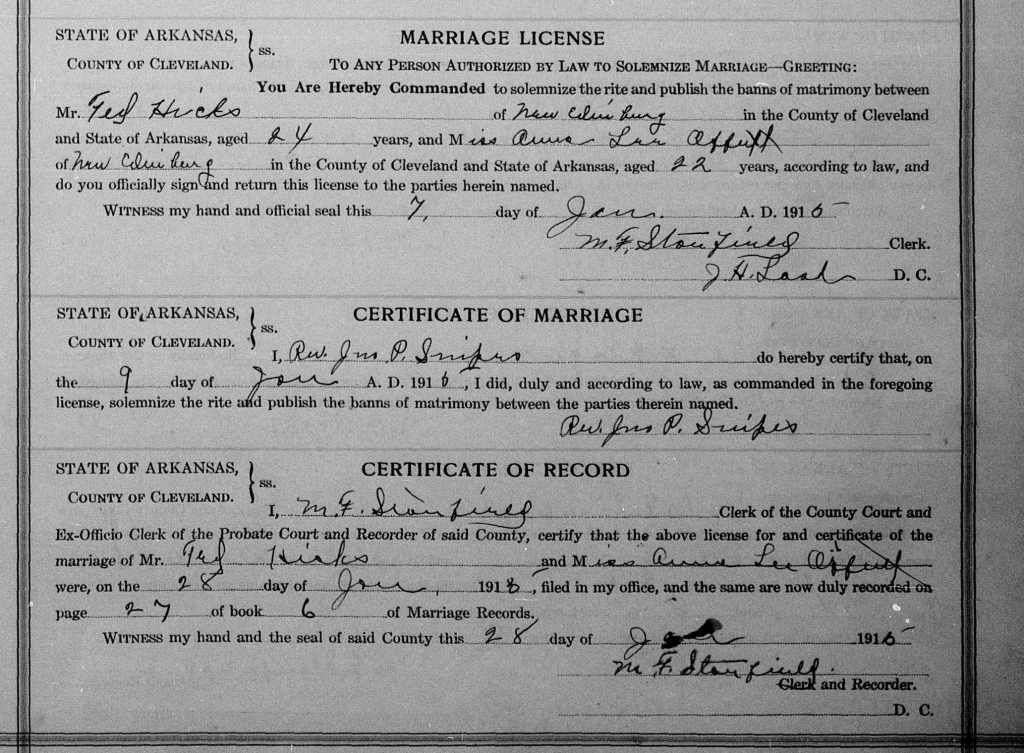 STATE OF ARKANSAS, } ss. MARRIAGE LICENSE
COUNTY OF CLEVELAND. TO ANY PERSON AUTHORIZED BY LAW TO SOLEMNIZE MARRIAGE—GREETING:
You Are Hereby Commanded to solemnize the rite and publish the banns of matrimony between
Mr. Ted Hicks of New Edinburg in the County of Cleveland
and State of Arkansas, aged 24 years, and Miss Anna Lee Offutt
of New Edinburg in the County of Cleveland and State of Arkansas, aged 22 years, according to law, and
do you officially sign and return this license to the parties herein named.
WITNESS my hand and official seal this 7, day of Jan. A. D. 1915
M. F. Stanfield Clerk.
J. H. Lash D. C.
STATE OF ARKANSAS, } ss. CERTIFICATE OF MARRIAGE
COUNTY OF CLEVELAND.
I, Rev. Jno P. Snipes do hereby certify that, on
the 9 day of Jan A. D. 1915, I did, duly and according to law, as commanded in the foregoing
license, solemnize the rite and publish the banns of matrimony between the parties therein named.
Rev. Jno P. Snipes
STATE OF ARKANSAS, } ss. CERTIFICATE OF RECORD
COUNTY OF CLEVELAND.
I, M. F. Stanfield Clerk of the County Court and
Ex-Officio Clerk of the Probate Court and Recorder of said County, certify that the above license for and certificate of the
marriage of Mr. Ted Hicks and Miss Anna Lee Offutt
were, on the 28 day of Jan, 191 , filed in my office, and the same are now duly recorded on
page 27 of book 6 of Marriage Records.
WITNESS my hand and the seal of said County this 28 day of Jan 1915
M. F. Stanfield.
Clerk and Recorder.
D. C.